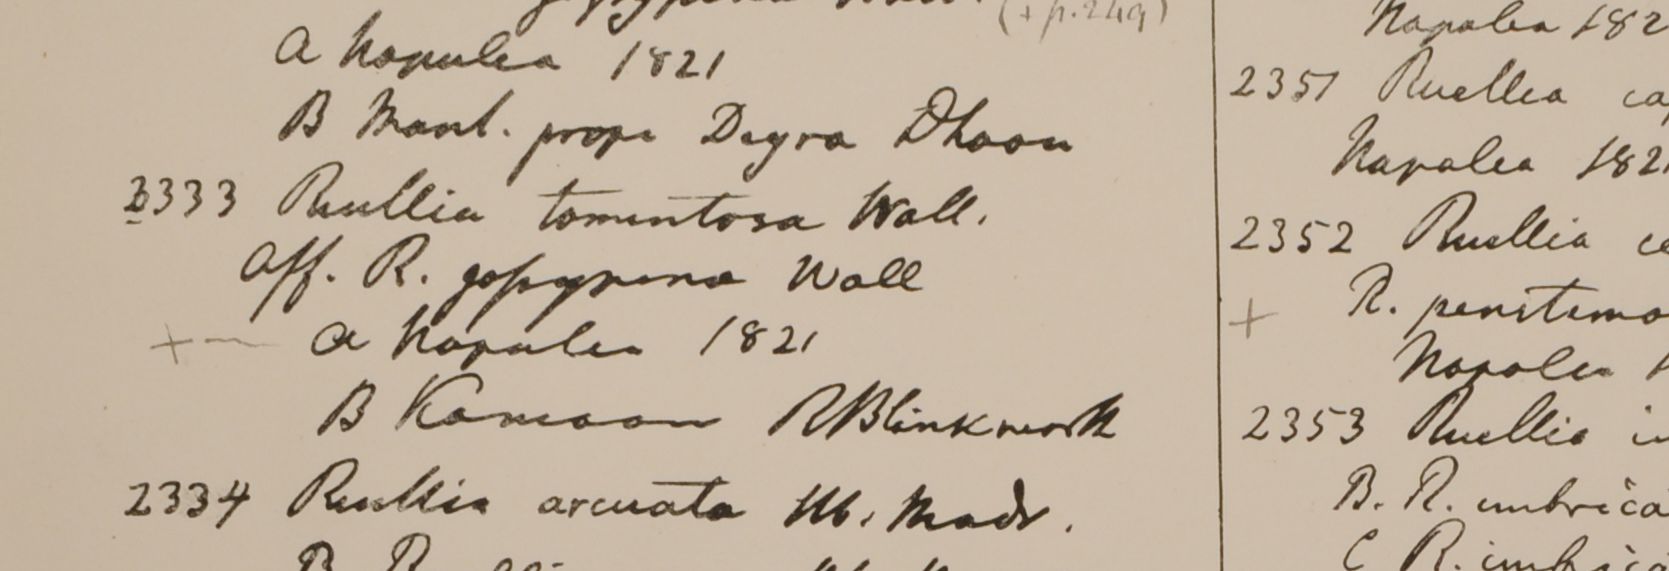 gossypina Wall. (+ p. 249)
a Napalea 1821
B Mont. prope Deyra Dhoon
2333 Ruellia tomentosa Wall.
Aff. R. gossypina Wall
+ — a Napalea 1821
B Kamaon RBlinkworth
2334 Ruellia arcuata Hb. Madr.
B R.
Napalea 182
2351 Ruellia ca
Napalea 1821
2352 Ruellia ca
+ R. penstemo
Napalea 1
2353 Ruellia i
B. R. imbrica
C R. imbric